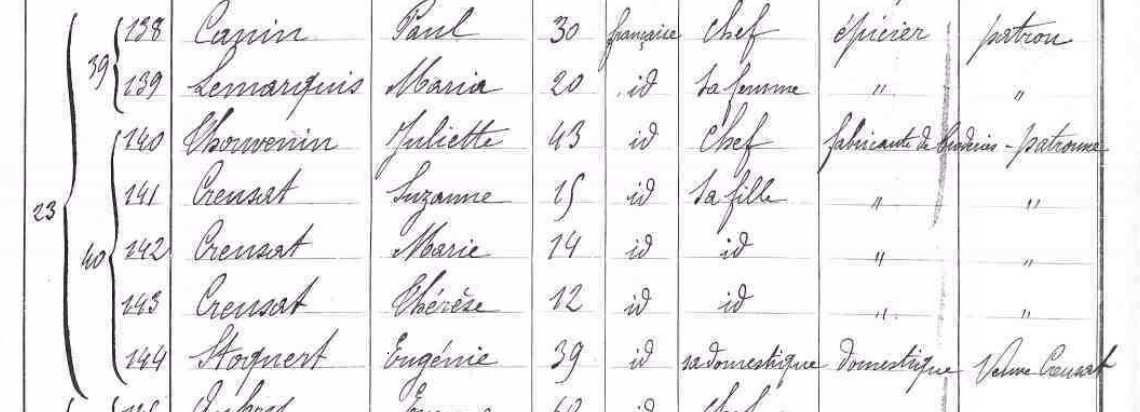 138 Canin Paul 30 française chef épicier patron
39 139 Lemarquis Maria 20 id sa femme " "
140 Thouvenin Juliette 43 id chef fabricante de broderies - patronne
141 Creusat Suzanne 15 id sa fille " "
23
40 142 Creusat Marie 14 id id " "
143 Creusat Thérèse 12 id id " "
144 Stoquert Eugénie 39 id sa domestique domestique Veuve Creusat